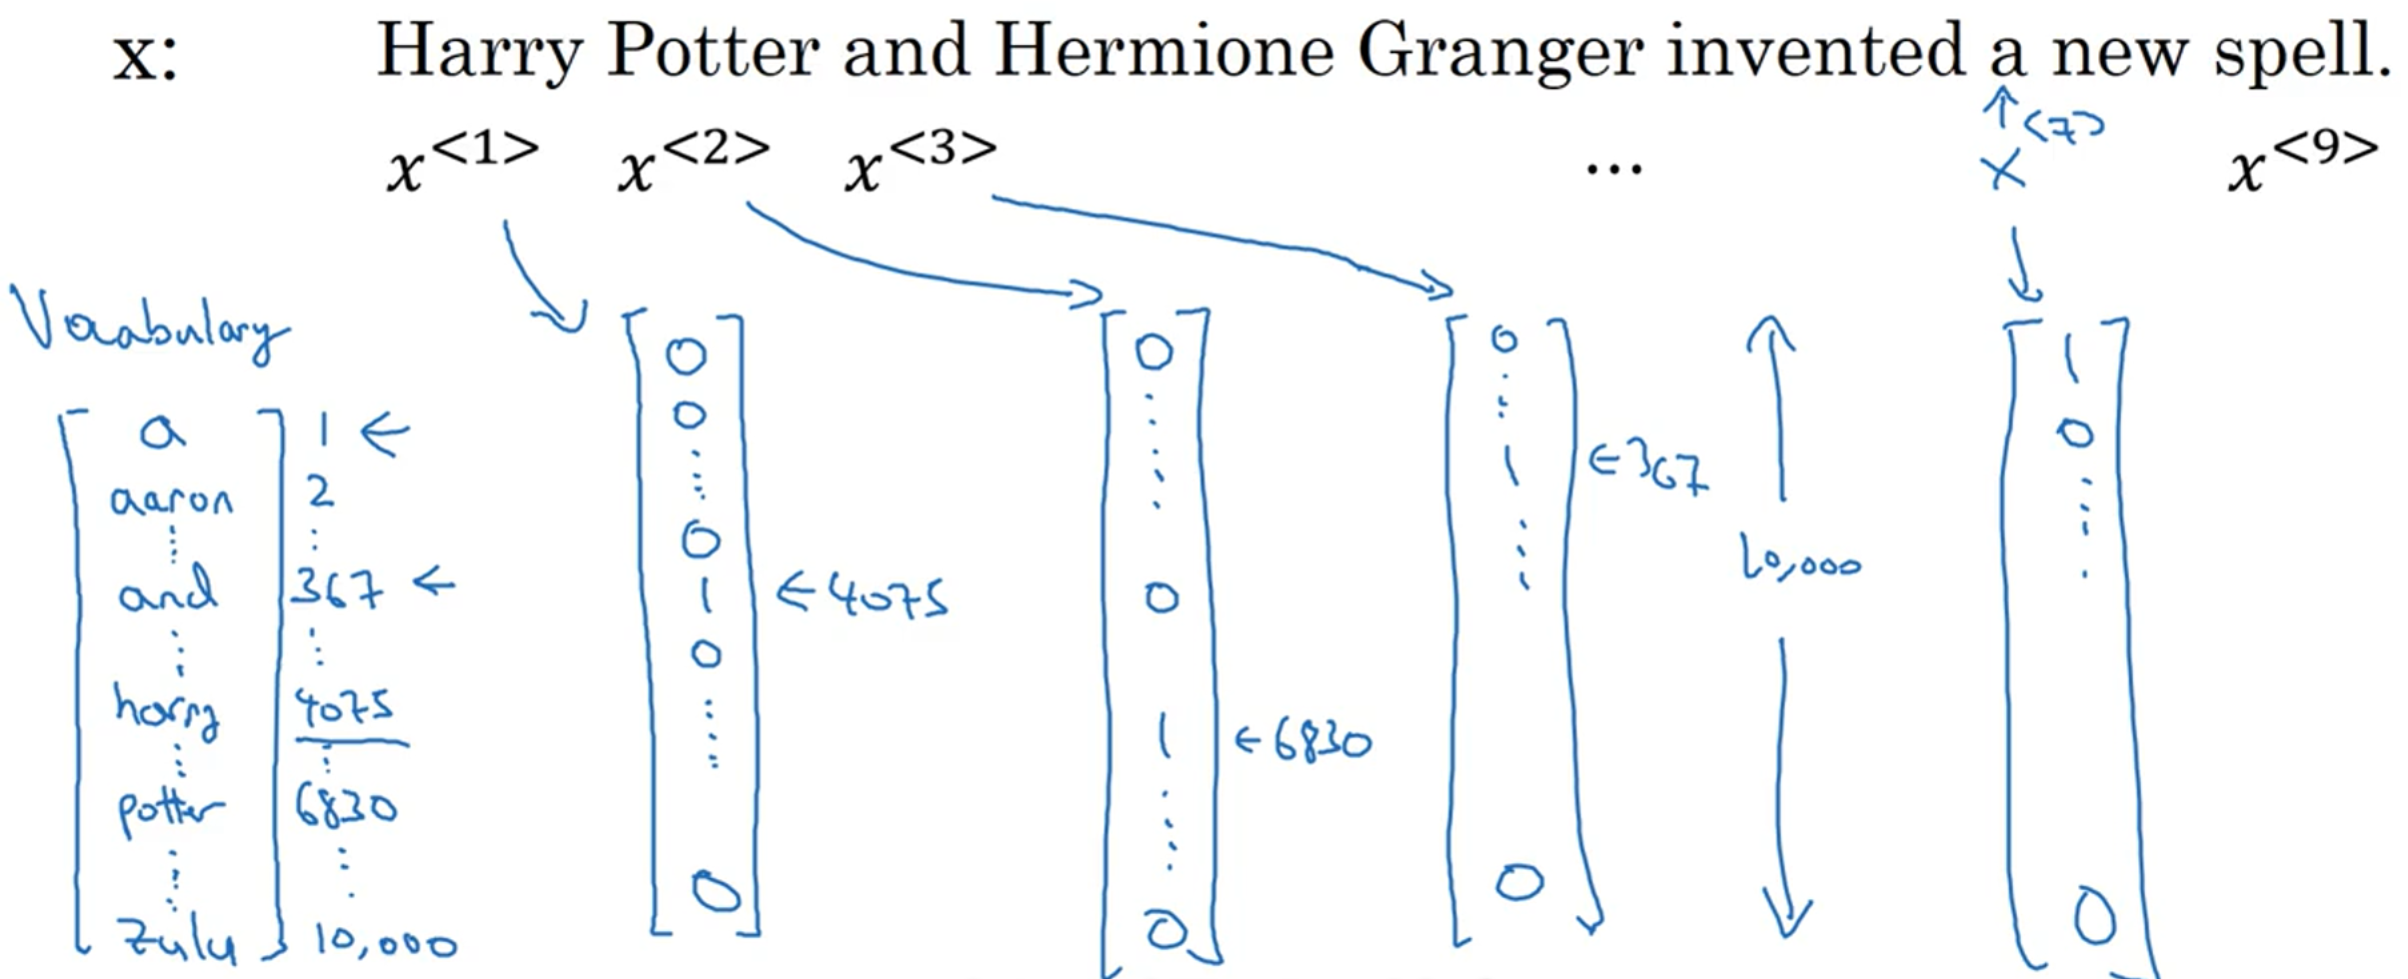 x: Harry Potter and Hermione Granger invented a new spell.
x<1> x<2> x<3> ... x<7> x<9>
Vocabulary
a 1 ←
aaron 2
⋮ ⋮
and 367 ←
⋮ ⋮
harry 4075
⋮ ⋮
potter 6830
⋮ ⋮
zulu 10,000
0
0
⋮
0
1 ← 4075
0
⋮
0
0
⋮
0
1 ← 6830
⋮
0
0
⋮
1 ← 367
⋮
0
10,000
1
0
⋮
0